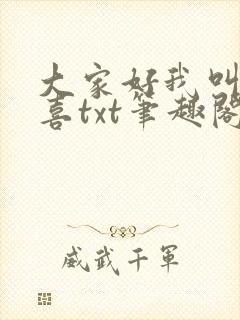 大家好我叫
喜txt笔趣阁
威武千军